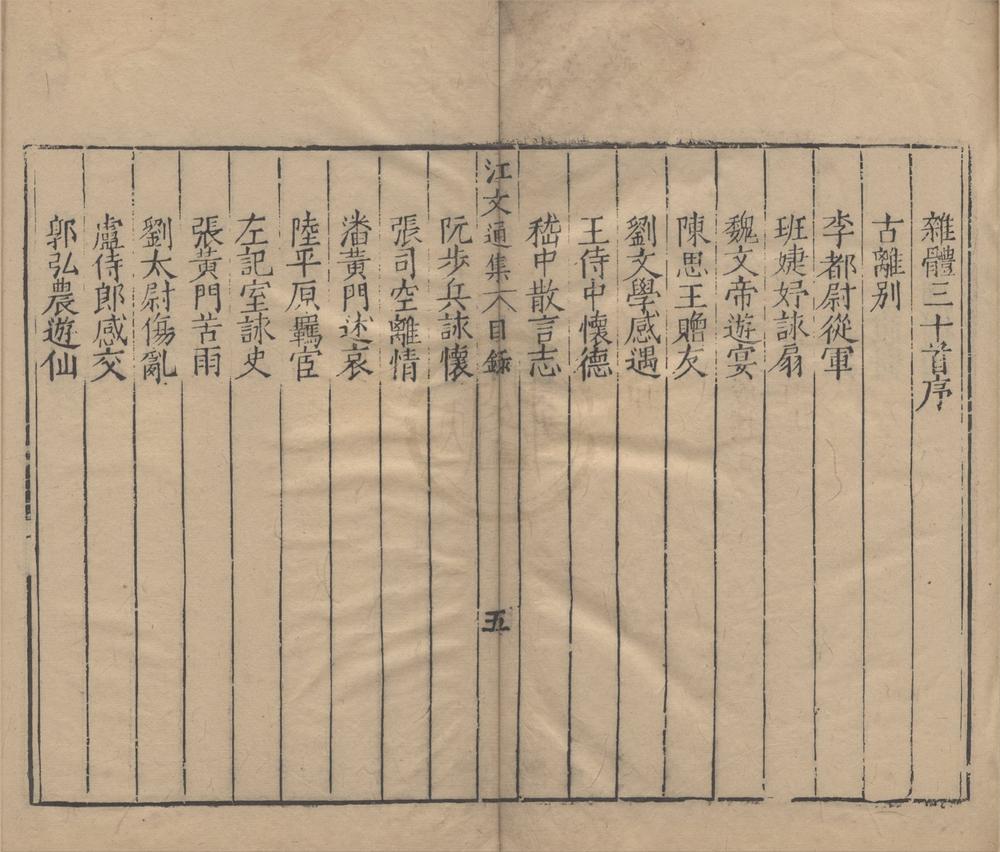 雜體三十首序
古離别
李都尉從軍
班婕妤詠扇
魏文帝遊宴
陳思王贈友
劉文學感遇
王侍中懷德
嵇中散言志
江文通集 目錄
五
阮步兵詠懷
張司空離情
潘黃門述哀
陸平原羇宦
左記室詠史
張黃門苦雨
劉太尉傷亂
盧侍郎感交
郭弘農遊仙